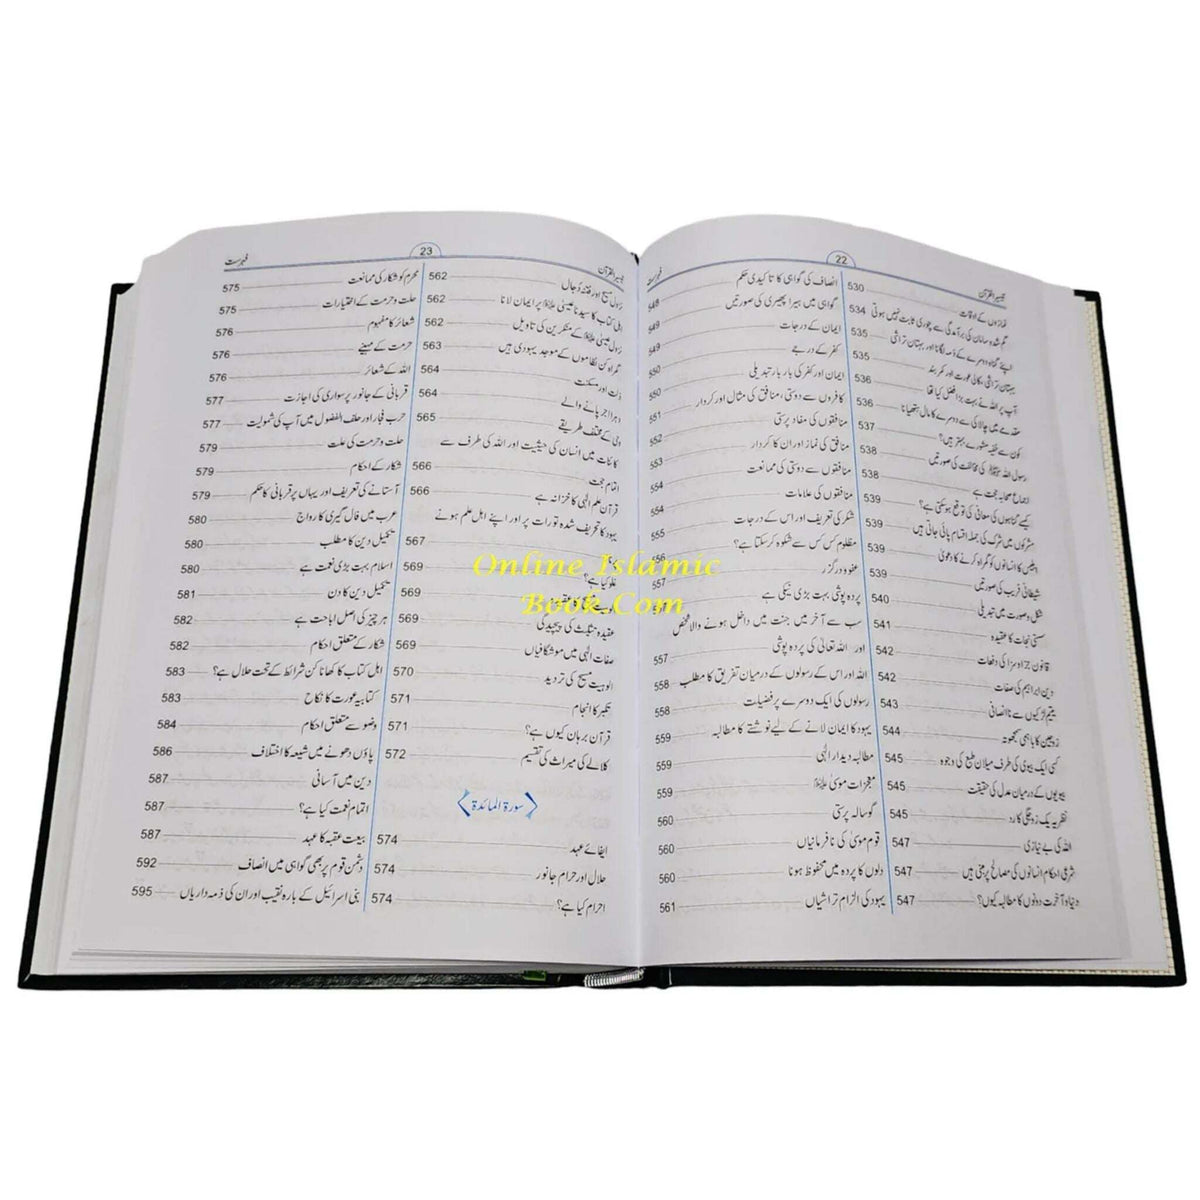 تفسیر القرآن
22
فہرست
نمازوں کے اوقات 530
گم شدہ سامان کی برآمدگی سے چوری ثابت نہیں ہوتی 534
اپنے گناہ دوسرے کے ذمہ لگانا اور بہتان تراشی 535
بہتان تراشی، مکانی عورت اور کمر بند 535
آپ پر اللہ نے بہت بڑا فضل کیا تھا 536
مقدمے میں چالاکی سے دوسرے کا مال ہتھیانا 536
کون سے خفیہ مشورے بہتر ہیں؟ 537
رسول اللہ ﷺ کی مخالفت کی صورتیں 538
اجماع صحابہ حجت ہے 538
کیسے گناہوں کی معافی کی توقع ہوسکتی ہے؟ 539
مشرکوں میں شرک کی جملہ اقسام پائی جاتی ہیں 539
ابلیس کا انسانوں کو گمراہ کرنے کا دعویٰ 539
شیطانی فریب کی صورتیں 539
شکل و صورت میں تبدیلی 540
سستی نجات کا عقیدہ 541
قانون جزا و سزا کی دفعات 542
دین ابراہیم کی صفات 542
یتیم لڑکیوں سے ناانصافی 543
زوجین کا باہمی سمجھوتہ 544
کسی ایک بیوی کی طرف میلان طبع کی وجوہ 545
بیویوں کے درمیان عدل کی حقیقت 545
نظریہ یک زوجگی کا رد 545
اللہ کی بے نیازی 547
شرعی احکام انسانوں کی مصالح پر مبنی ہیں 547
دنیا و آخرت دونوں کا مطالبہ کیوں؟ 547
انصاف کی گواہی کا تاکیدی حکم 548
گواہی میں ہیرا پھیری کی صورتیں 549
ایمان کے درجات 549
کفر کے درجے 550
ایمان اور کفر کی بار بار تبدیلی 550
کافروں سے دوستی، منافق کی مثال اور کردار 551
منافقوں کی مفاد پرستی 552
منافق کی نماز اور ان کا کردار 553
منافقوں سے دوستی کی ممانعت 554
منافقوں کی علامات 554
شکر کی تعریف اور اس کے درجات 555
مظلوم کس کس سے شکوہ کرسکتا ہے؟ 556
عفو و درگزر 557
پردہ پوشی بہت بڑی نیکی ہے 557
سب سے آخر میں جنت میں داخل ہونے والا شخص
اور اللہ تعالیٰ کی پردہ پوشی 557
اللہ اور اس کے رسولوں کے درمیان تفریق کا مطلب 558
رسولوں کی ایک دوسرے پر فضیلت 558
یہود کا ایمان لانے کے لیے نوشتے کا مطالبہ 559
مطالبہ دیدار الٰہی 559
معجزات موسیٰ علیہ السلام 559
گوسالہ پرستی 560
قوم موسیٰ کی نافرمانیاں 560
دلوں کا پردہ میں محفوظ ہونا 560
یہود کی الزام تراشیاں 561
تفسیر القرآن
23
فہرست
نزول مسیح اور فتنہ دجال 562
اہل کتاب کا سیدنا عیسیٰ علیہ السلام پر ایمان لانا 562
نزول عیسیٰ علیہ السلام کے منکرین کی تاویل 562
گمراہ کن نظاموں کے موجد یہودی ہیں 563
ذلت اور مسکنت 564
دہرا اجر پانے والے 564
وحی کے مختلف طریقے 565
کائنات میں انسان کی حیثیت اور اللہ کی طرف سے
اتمام حجت 566
قرآن علم الٰہی کا خزانہ ہے 566
یہود کا تحریف شدہ تورات پر اور اپنے اہل علم ہونے
567
غلو کیا ہے؟ 569
کا عقیدہ 569
عقیدہ تثلیث کی پیچیدگی
صفات الٰہی میں موشگافیاں 569
الوہیت مسیح کی تردید 570
تکبر کا انجام 571
قرآن برہان کیوں ہے؟ 571
کلالے کی میراث کی تقسیم 572
سورۃ المائدۃ
ایفائے عہد 574
حلال اور حرام جانور 574
احرام کیا ہے؟ 574
محرم کو شکار کی ممانعت 575
حلت و حرمت کے اختیارات 575
شعائر کا مفہوم 576
حرمت کے مہینے 576
اللہ کے شعائر 576
قربانی کے جانور پر سواری کی اجازت 577
حرب فجار اور حلف الفضول میں آپ کی شمولیت 577
حلت و حرمت کی علت 579
شکار کے احکام 579
آستانے کی تعریف اور یہاں پر قربانی کا حکم 579
عرب میں فال گیری کا رواج 580
تکمیل دین کا مطلب 580
اسلام بہت بڑی نعمت ہے 580
تکمیل دین کا دن 581
ہر چیز کی اصل اباحت ہے 582
شکار کے متعلق احکام 582
اہل کتاب کا کھانا کن شرائط کے تحت حلال ہے؟ 583
کتابیہ عورت کا نکاح 583
وضو سے متعلق احکام 584
پاؤں دھونے میں شیعہ کا اختلاف 586
دین میں آسانی 587
اتمام نعمت کیا ہے؟ 587
بیعت عقبہ کا عہد 587
دشمن قوم پر بھی گواہی میں انصاف 592
بنی اسرائیل کے بارہ نقیب اور ان کی ذمہ داریاں 595
Online Islamic
Book.Com